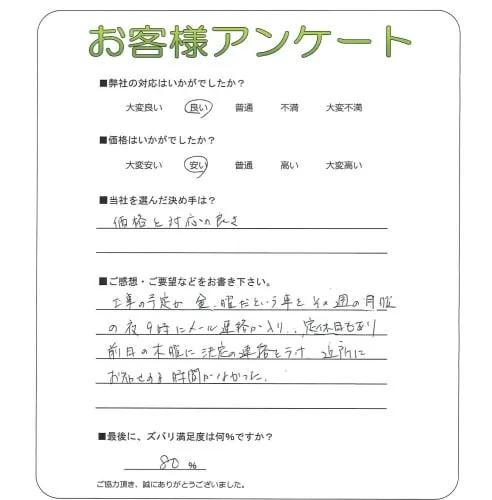 お客様アンケート
■弊社の対応はいかがでしたか？
大変良い 良い 普通 不満 大変不満
■価格はいかがでしたか？
大変安い 安い 普通 高い 大変高い
■当社を選んだ決め手は？
価格と対応の良さ
■ご感想・ご要望などをお書き下さい。
工事の予定が 金曜だという事を その週の月曜
の夜9時にメール連絡が入り、定休日もあり
前日の木曜に決定の連絡をうけ 近所に
お知らせする時間がなかった。
■最後に、ズバリ満足度は何%ですか？
80 %
ご協力頂き、誠にありがとうございました。